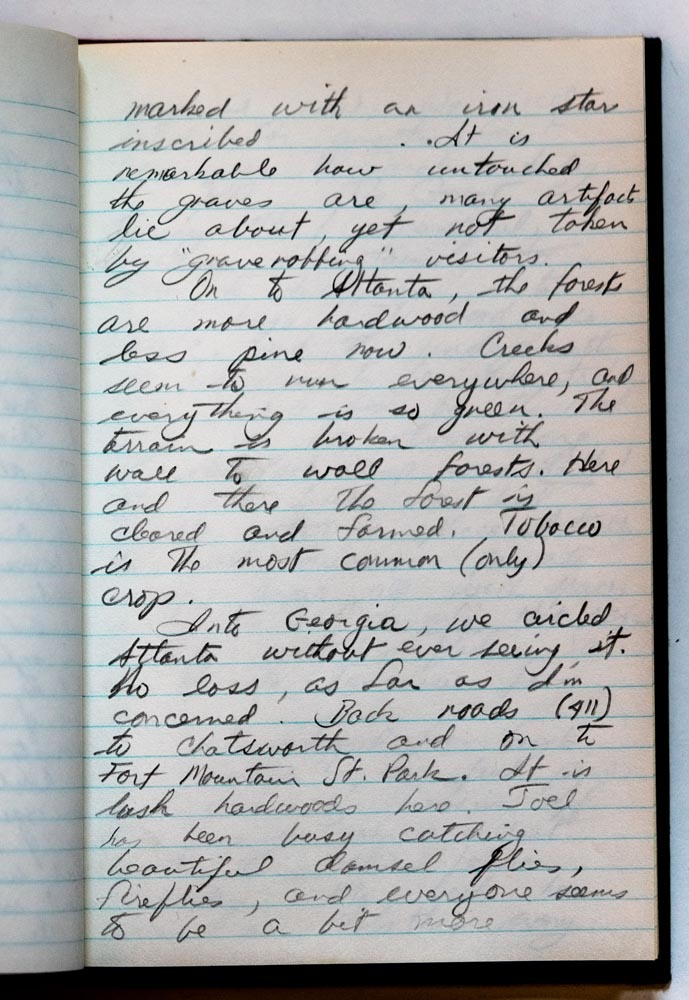 marked with an iron star
inscribed . . It is
remarkable how untouched
the graves are, many artifacts
lie about, yet not taken
by "grave robbing" visitors.
On to Atlanta, the forests
are more hardwood and
less pine now. Creeks
seem to run everywhere, and
everything is so green. The
terrain is broken with
wall to wall forests. Here
and there the forest is
cleared and farmed. Tobacco
is the most common (only)
crop.
Into Georgia, we circled
Atlanta without ever seeing it.
No loss, as far as I'm
concerned. Back roads (411)
to Chatsworth and on to
Fort Mountain St. Park. It is
lush hardwoods here. Joel
has been busy catching
beautiful damsel flies,
fireflies, and everyone seems
to be a bit more